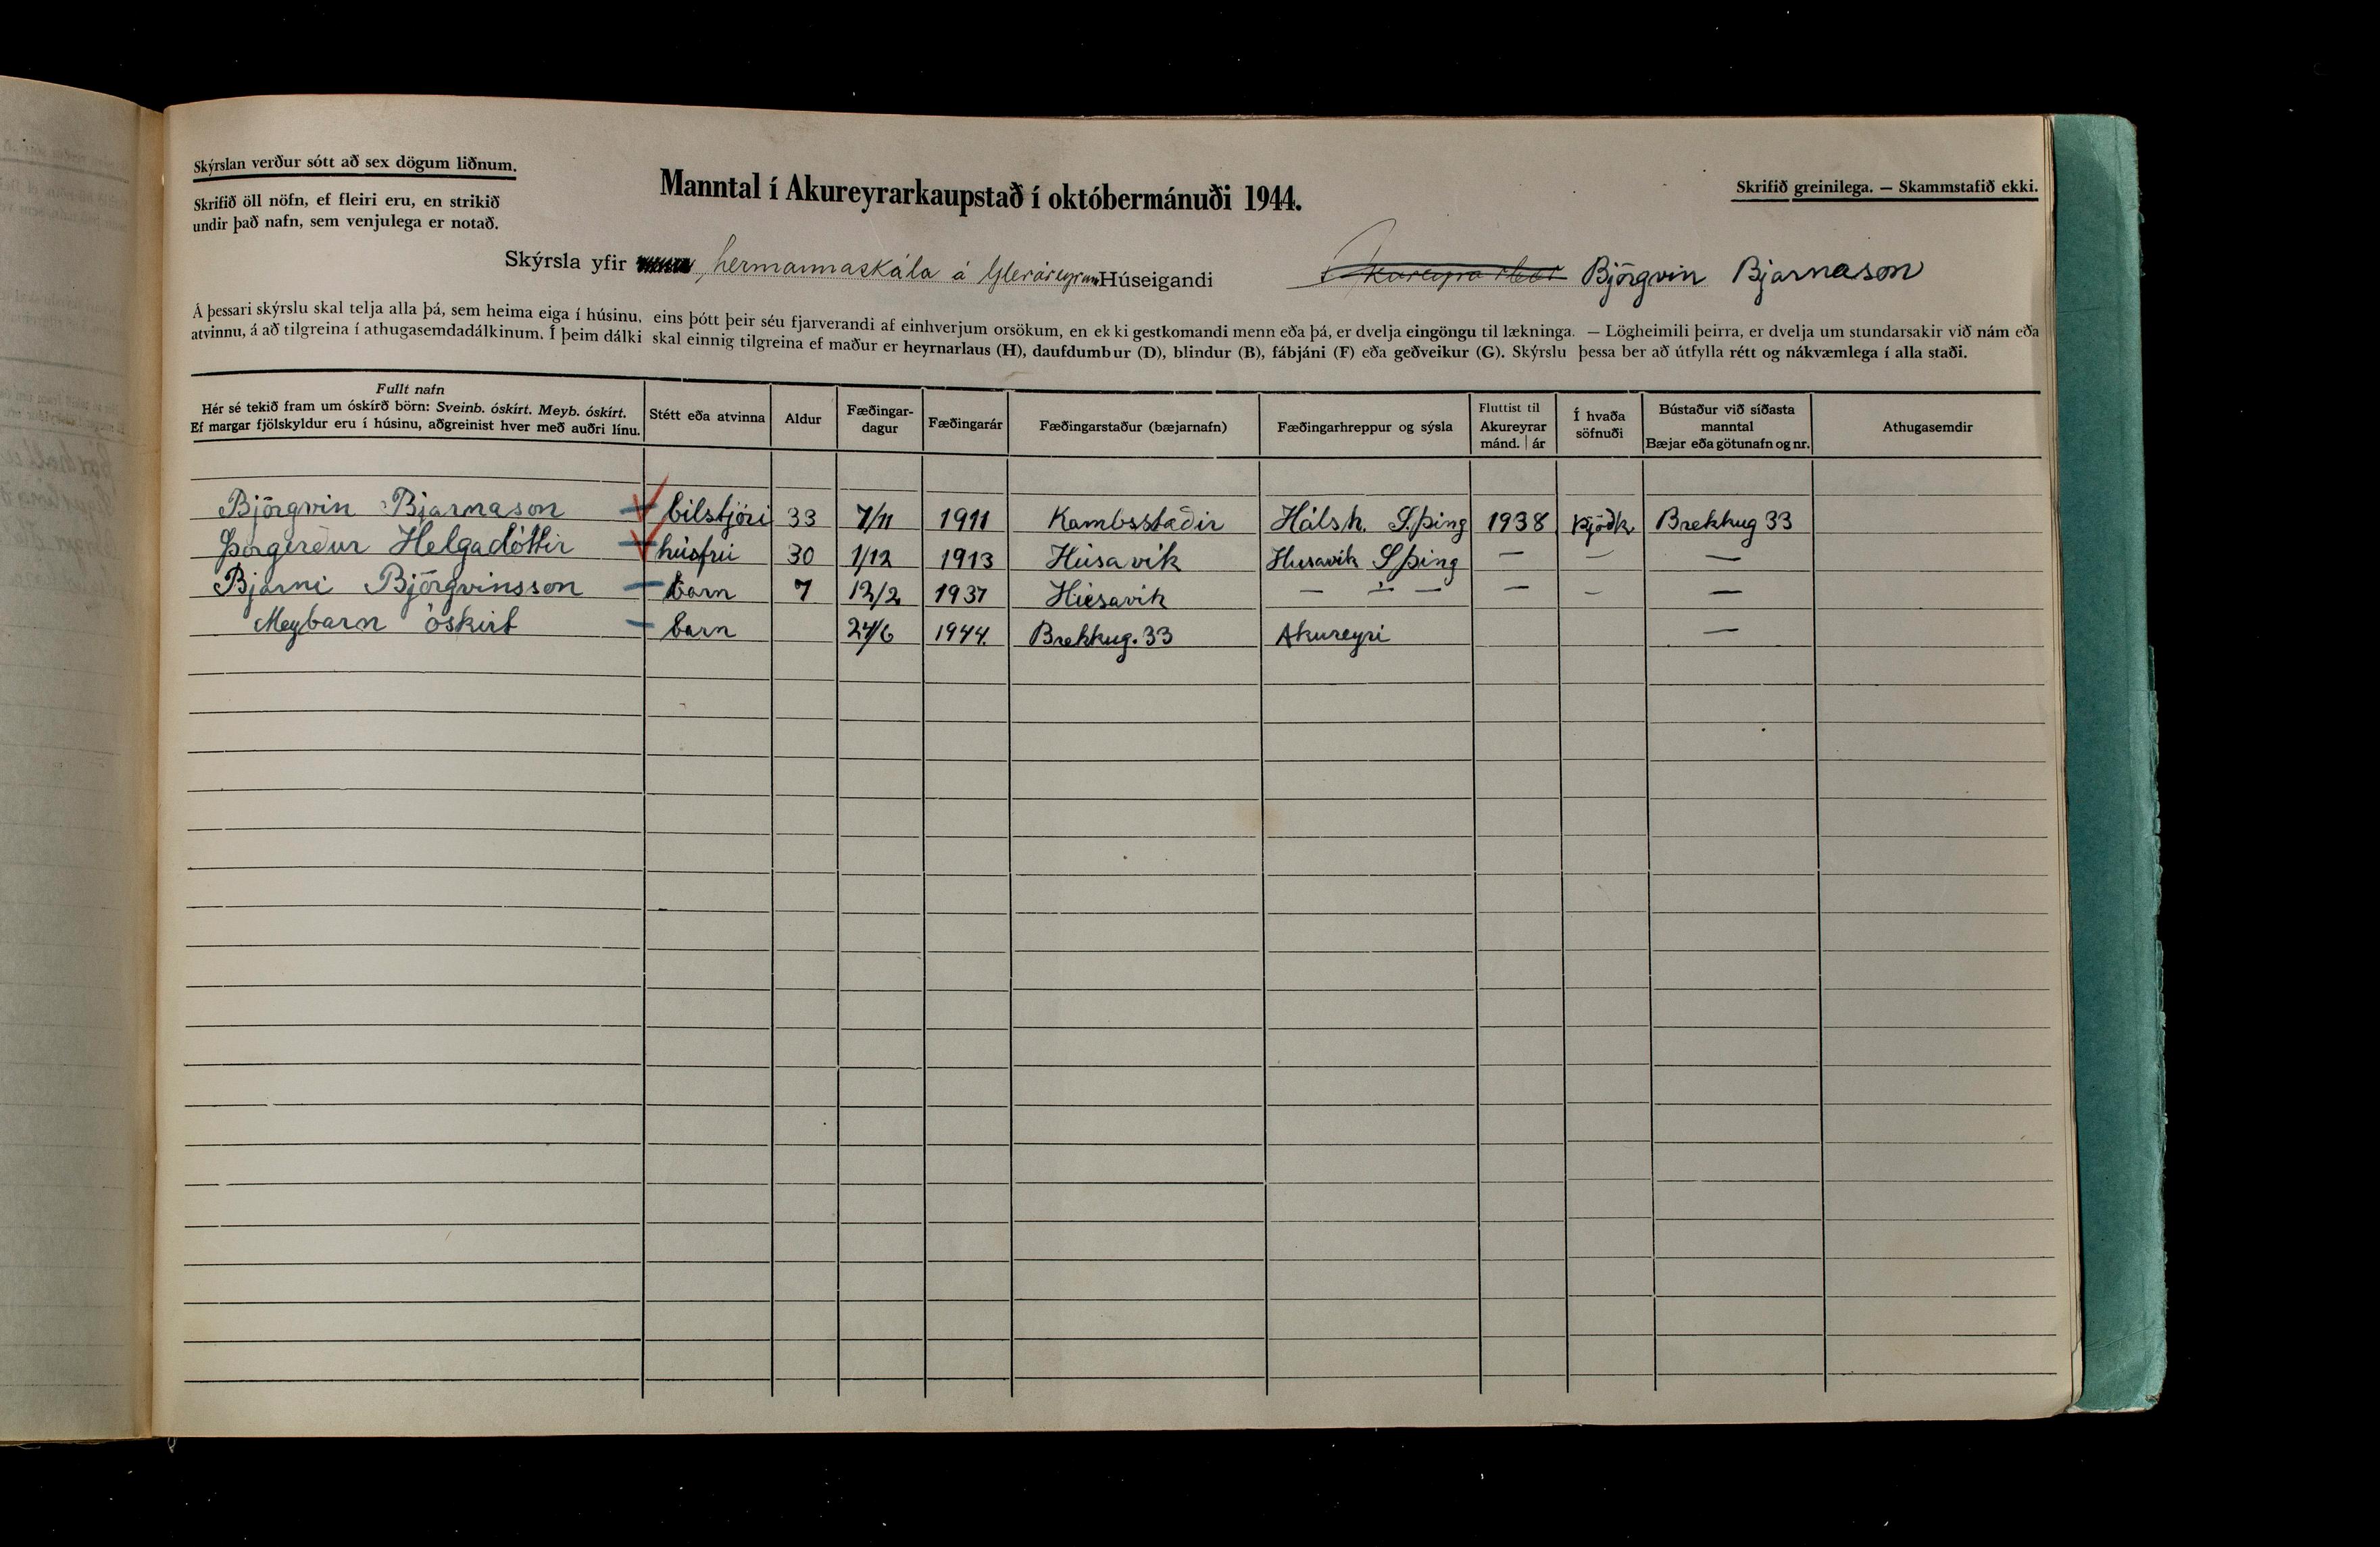 Skýrslan verður sótt að sex dögum liðnum.
Skrifið öll nöfn, ef fleiri eru, en strikið
undir það nafn, sem venjulega er notað.
Manntal í Akureyrarkaupstað í októbermánuði 1944.
Skrifið greinilega. — Skammstafið ekki.
Skýrsla yfir hermannaskála á Gleráreyrum Húseigandi Björgvin Bjarnason
Á þessari skýrslu skal telja alla þá, sem heima eiga í húsinu, eins þótt þeir séu fjarverandi af einhverjum orsökum, en ekki gestkomandi menn eða þá, er dvelja eingöngu til lækninga. — Lögheimili þeirra, er dvelja um stundarsakir við nám eða
atvinnu, á að tilgreina í athugasemdadálkinum. Í þeim dálki skal einnig tilgreina ef maður er heyrnarlaus (H), daufdumbur (D), blindur (B), fábjáni (F) eða geðveikur (G). Skýrslu þessa ber að útfylla rétt og nákvæmlega í alla staði.
Fullt nafn
Hér sé tekið fram um óskírð börn: Sveinb. óskírt. Meyb. óskírt.
Ef margar fjölskyldur eru í húsinu, aðgreinist hver með auðri línu.
Stétt eða atvinna
Aldur
Fæðingar-
dagur
Fæðingarár
Fæðingarstaður (bæjarnafn)
Fæðingarhreppur og sýsla
Fluttist til
Akureyrar
mánd. | ár
Í hvaða
söfnuði
Bústaður við síðasta
manntal
Bæjar eða götunafn og nr.
Athugasemdir
Björgvin Bjarnason bílstjóri 33 7/11 1911 Kambsstaðir Hálsh. S.þing 1938 Þjóðk Brekkug 33
Þorgerður Helgadóttir húsfrú 30 1/12 1913 Húsavík Husavik S þing — — —
Bjarni Björgvinsson barn 7 12/2 1937 Húsavik — — — — — —
Meybarn óskirt barn 24/6 1944. Brekkug. 33 Akureyri —